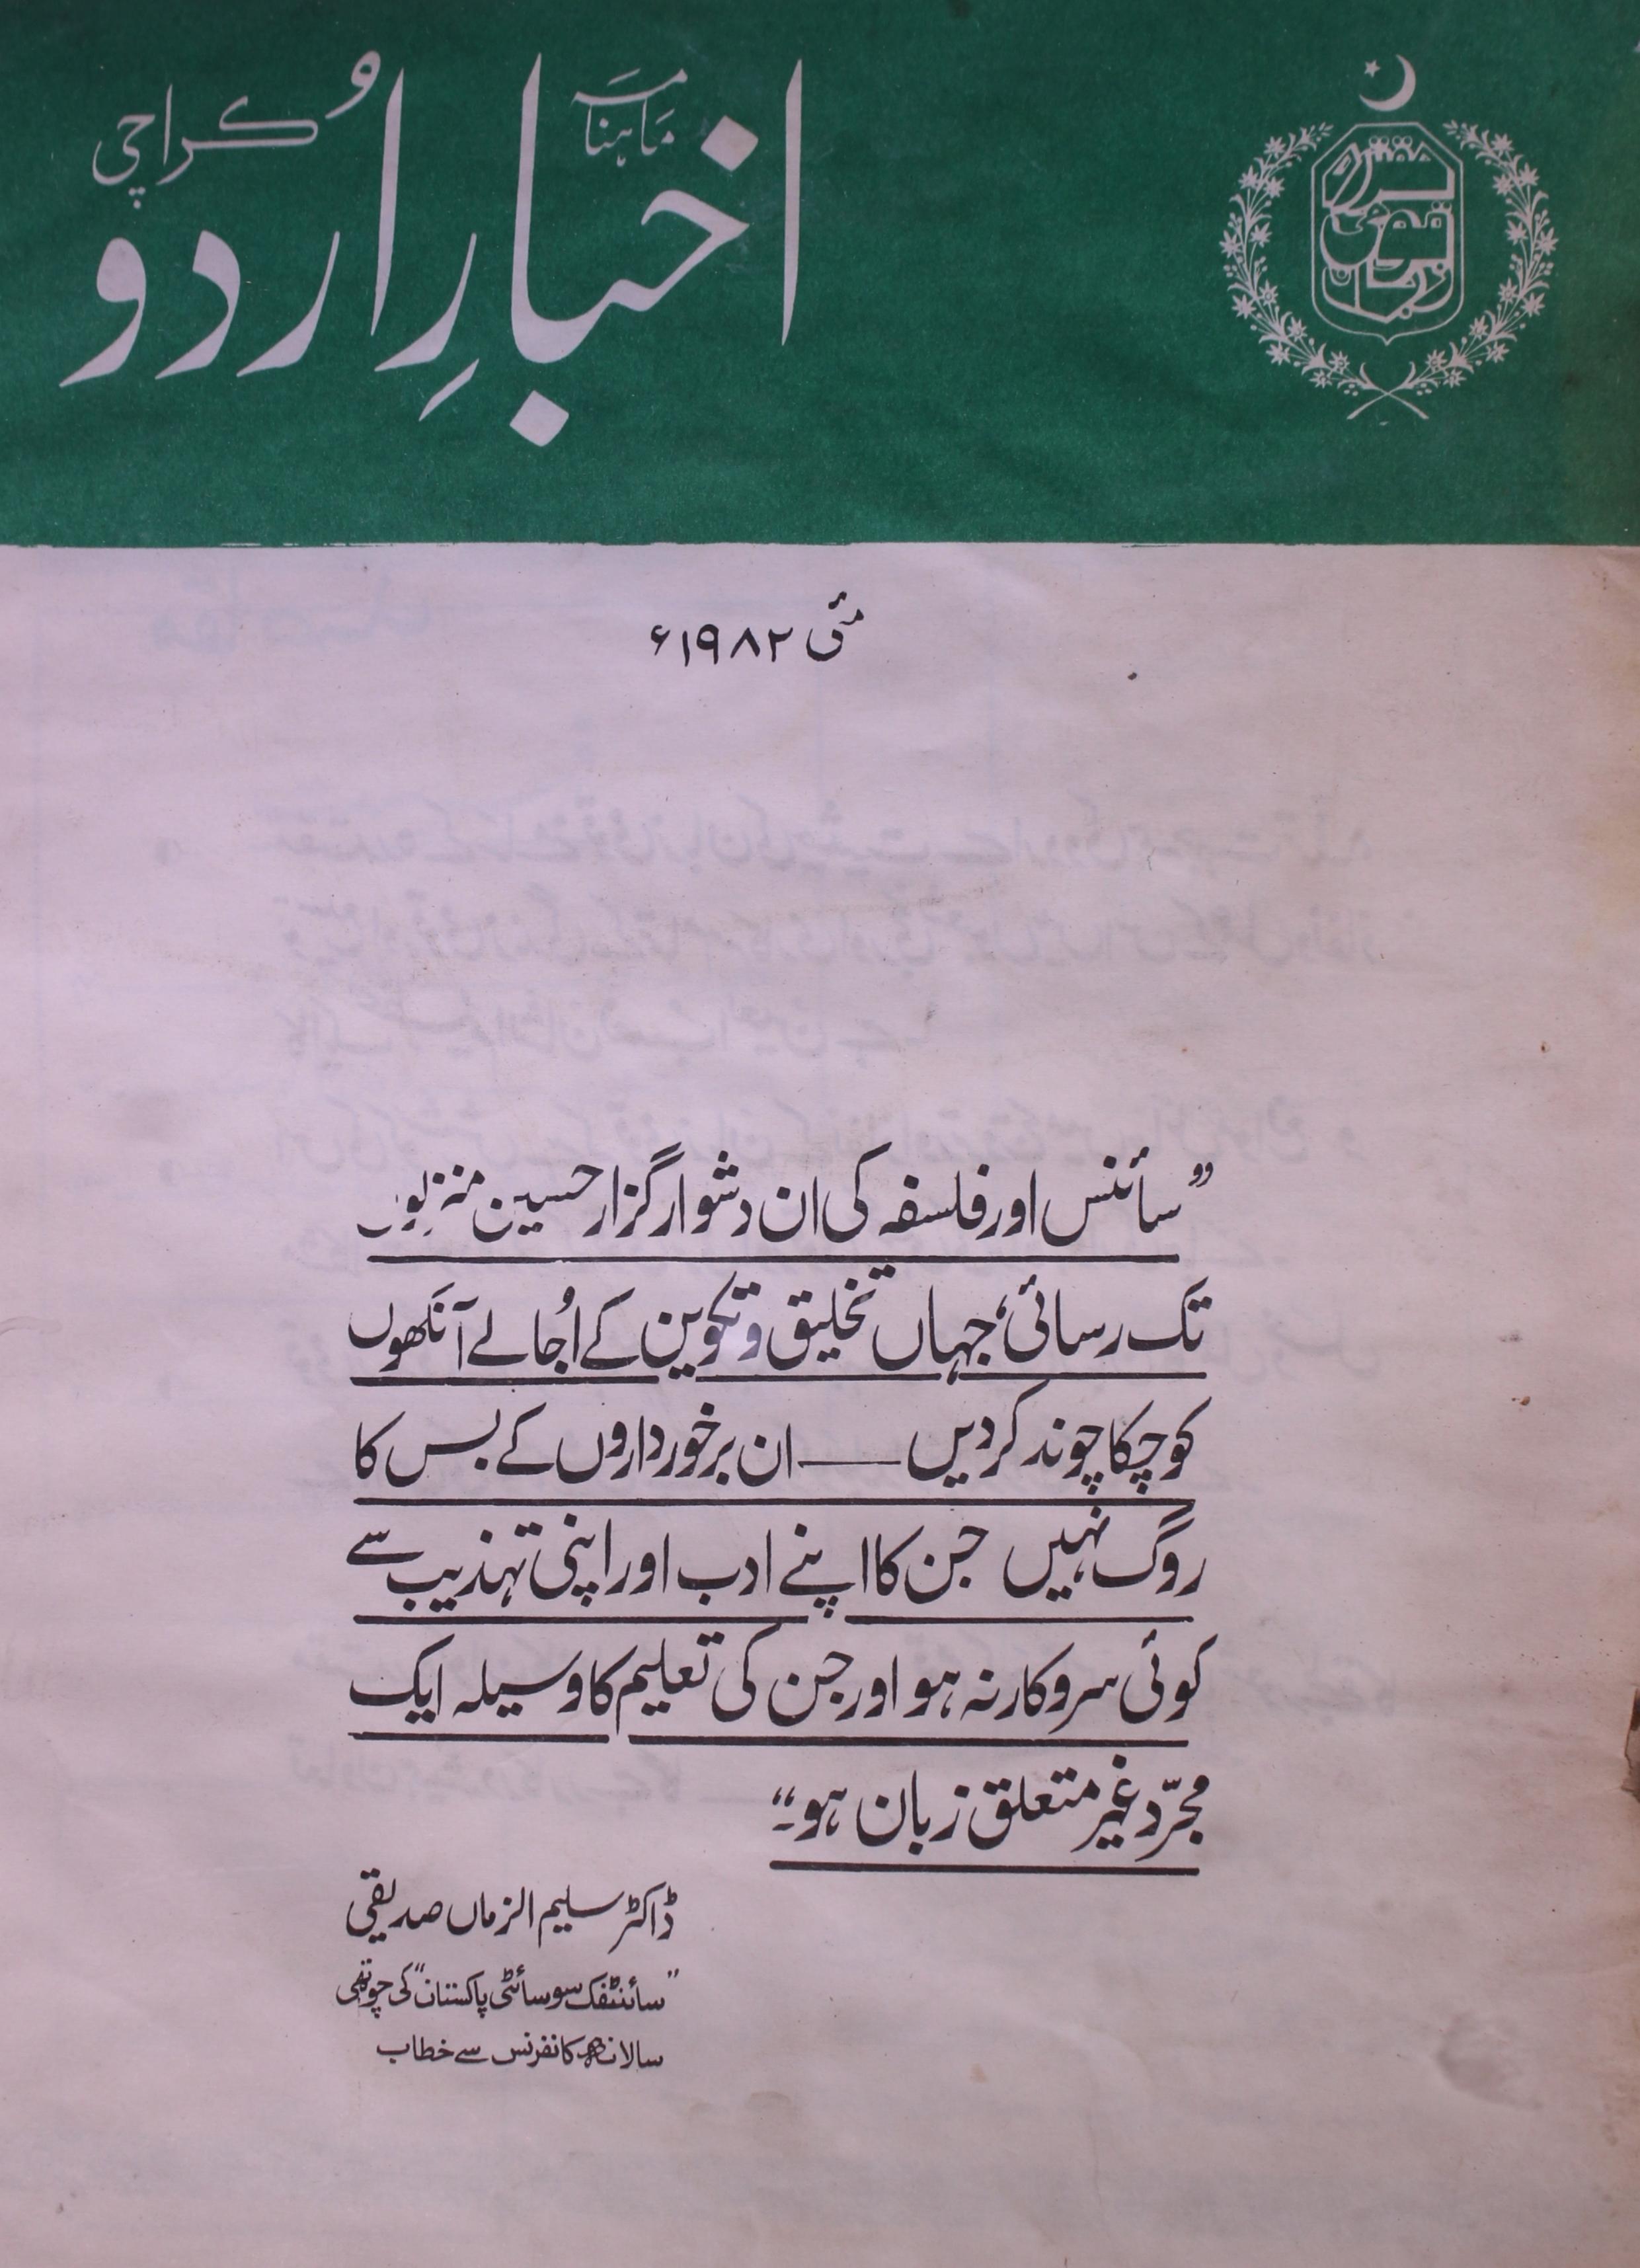 ماہنامہ
اخبارِ اُردو
کراچی
مقتدرہ
قومی
زبان
مئی ۱۹۸۲ء
”سائنس اور فلسفہ کی ان دشوار گزار حسین منزلوں
تک رسائی، جہاں تخلیق و تکوین کے اُجالے آنکھوں
کو چکا چوند کردیں ــــ ان برخورداروں کے بس کا
روگ نہیں جن کا اپنے ادب اور اپنی تہذیب سے
کوئی سروکار نہ ہو اور جن کی تعلیم کا وسیلہ ایک
مجرّد غیر متعلق زبان ہو۔“
ڈاکٹر سلیم الزماں صدیقی
”سائنٹفک سوسائٹی پاکستان“ کی چوتھی
سالانہ کانفرنس سے خطاب